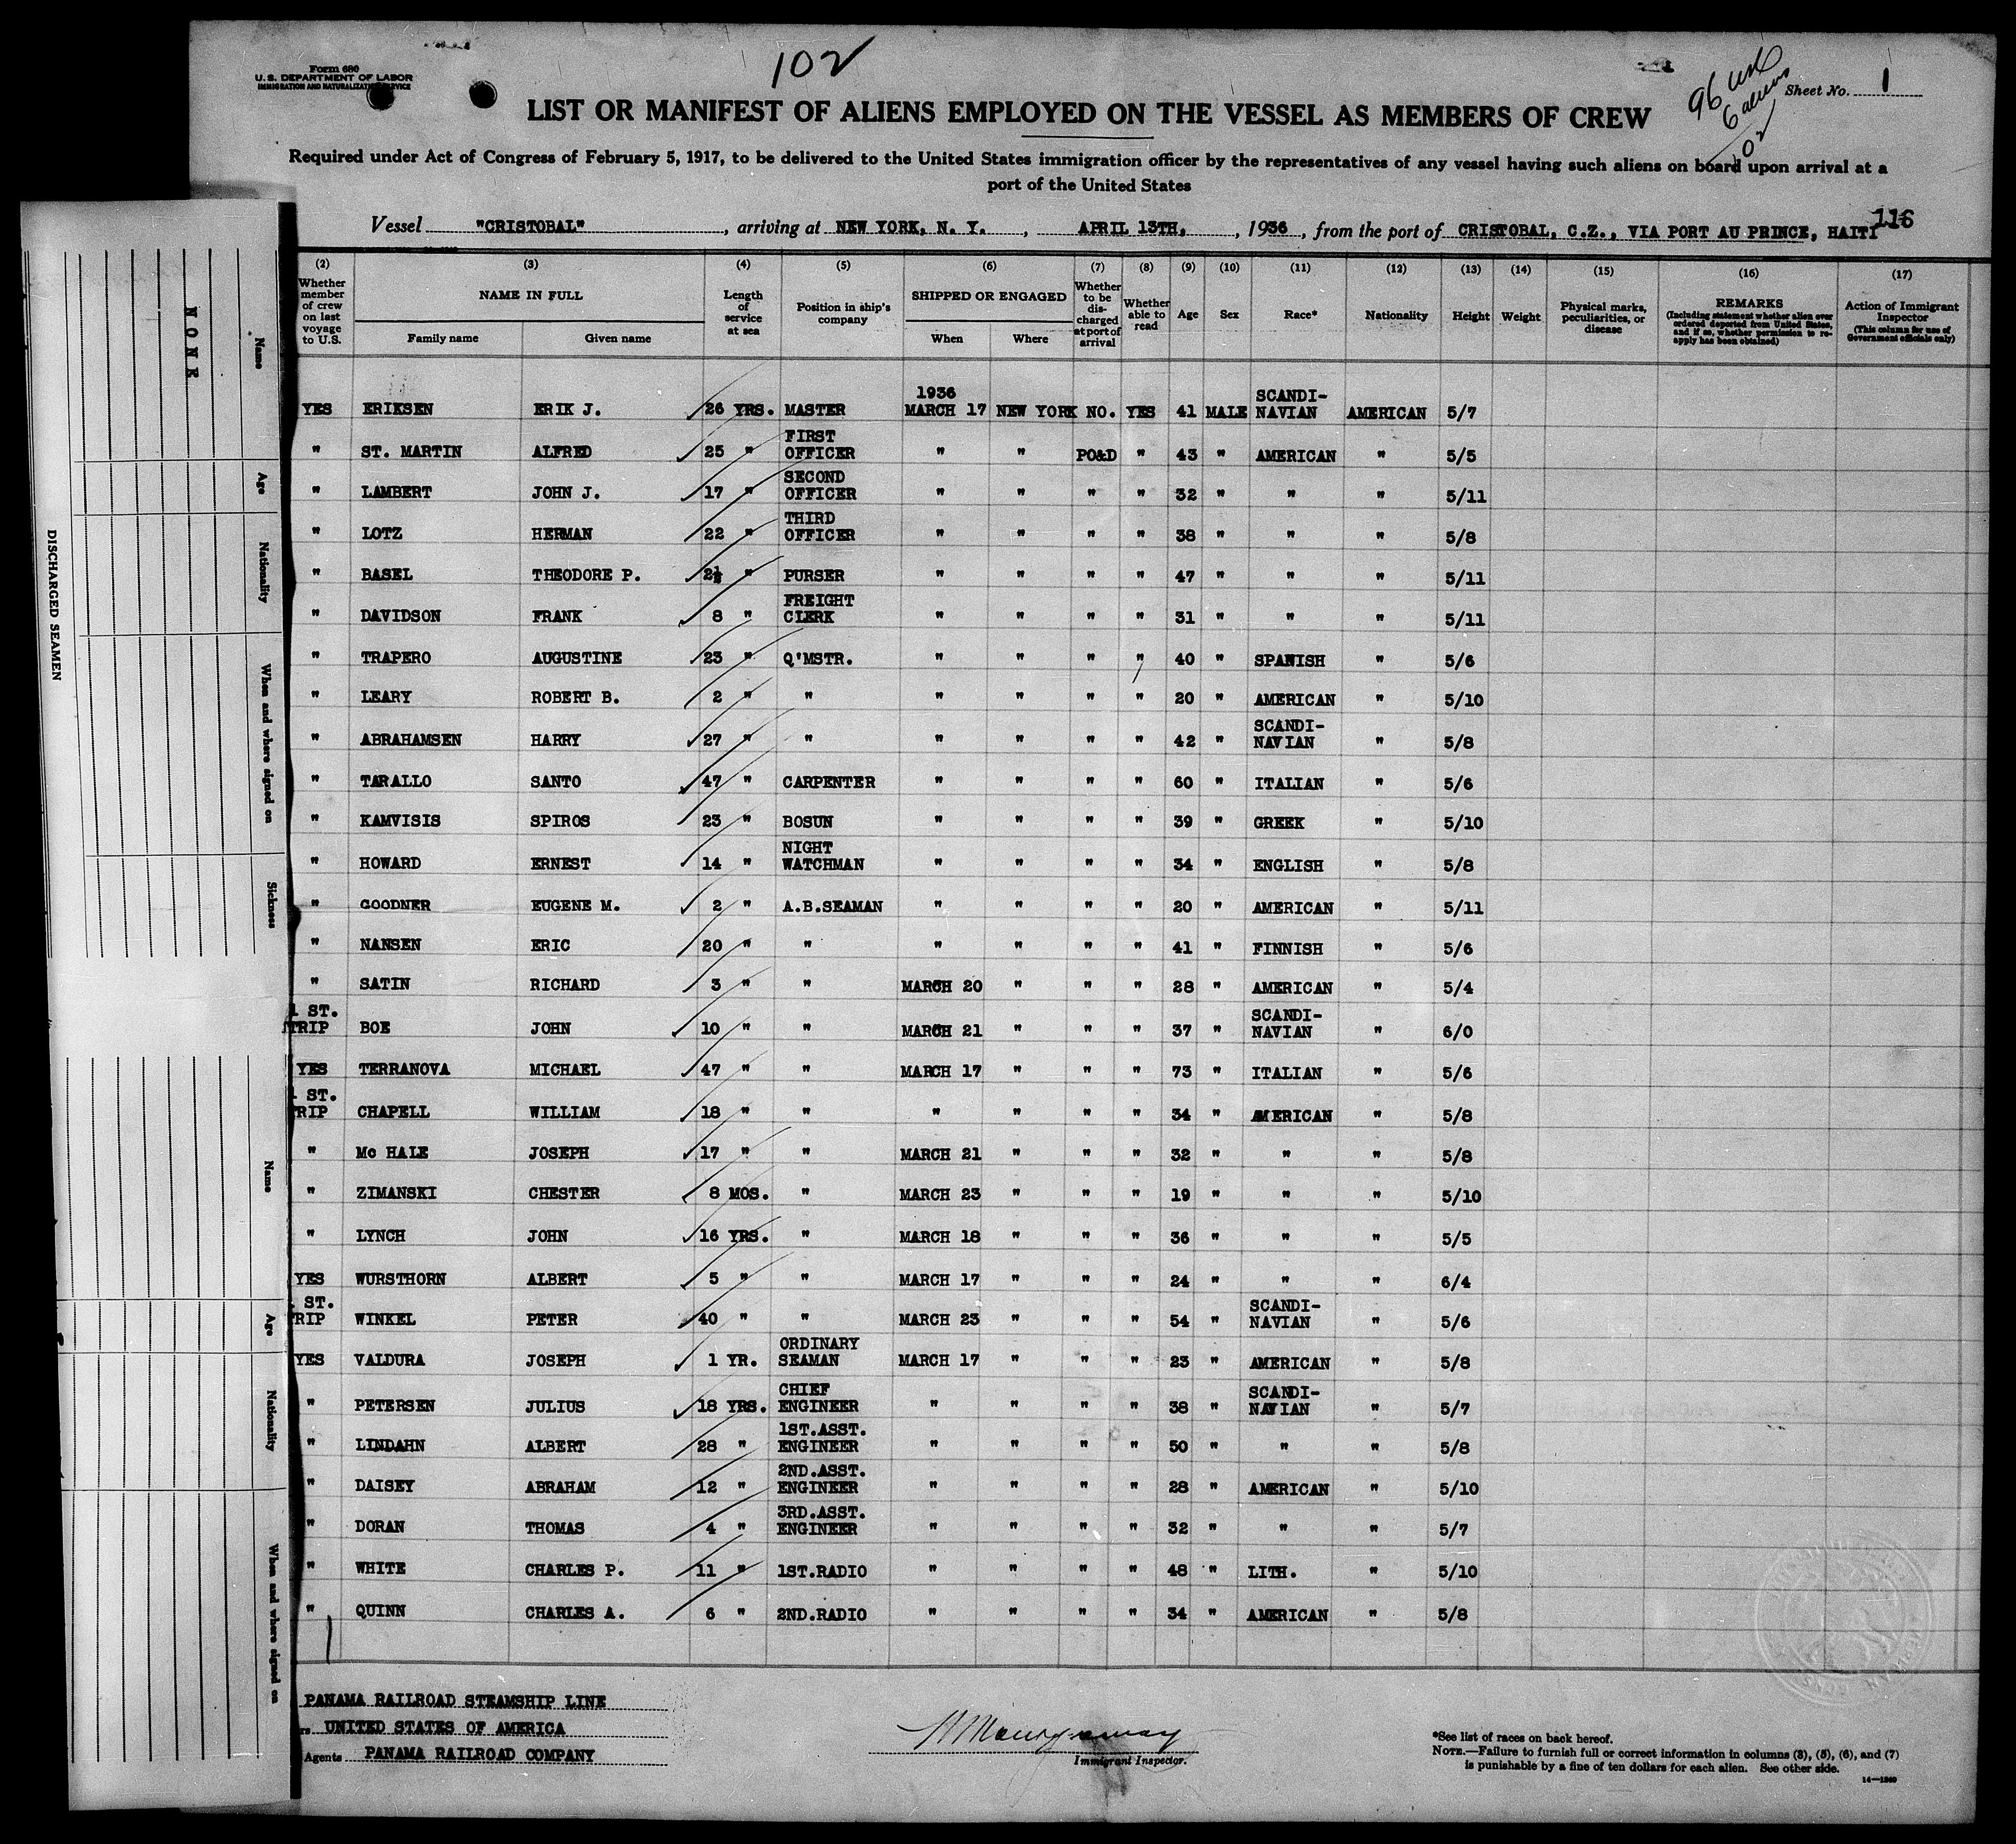 102
Form 680
U. S. DEPARTMENT OF LABOR
IMMIGRATION AND NATURALIZATION SERVICE
96 usc
6 aliens
102
Sheet No. 1
LIST OR MANIFEST OF ALIENS EMPLOYED ON THE VESSEL AS MEMBERS OF CREW
Required under Act of Congress of February 5, 1917, to be delivered to the United States immigration officer by the representatives of any vessel having such aliens on board upon arrival at a
port of the United States
116
Vessel "CRISTOBAL" , arriving at NEW YORK, N. Y. , APRIL 13TH, , 1936 , from the port of CRISTOBAL, C.Z., VIA PORT AU PRINCE, HAITI
(2) (3) (4) (5) (6) (7) (8) (9) (10) (11) (12) (13) (14) (15) (16) (17)
Whether member of crew on last voyage to U.S.
NAME IN FULL
Family name Given name
Length of service at sea
Position in ship's company
SHIPPED OR ENGAGED
When Where
Whether to be discharged at port of arrival
Whether able to read
Age
Sex
Race*
Nationality
Height
Weight
Physical marks, peculiarities, or disease
REMARKS
(Including statement whether alien ever ordered deported from United States, and if so, whether permission to reapply has been obtained)
Action of Immigrant Inspector
(This column for use of Government officials only)
1936
YES ERIKSEN ERIK J. 26 YRS. MASTER MARCH 17 NEW YORK NO. YES 41 MALE SCANDI-NAVIAN AMERICAN 5/7
" ST. MARTIN ALFRED 25 " FIRST OFFICER " " PO&D " 43 " AMERICAN " 5/5
" LAMBERT JOHN J. 17 " SECOND OFFICER " " " " 32 " " " 5/11
" LOTZ HERMAN 22 " THIRD OFFICER " " " " 38 " " " 5/8
" BASEL THEODORE P. 2½ " PURSER " " " " 47 " " " 5/11
" DAVIDSON FRANK 8 " FREIGHT CLERK " " " " 31 " " " 5/11
" TRAPERO AUGUSTINE 23 " Q'MSTR. " " " " 40 " SPANISH " 5/6
" LEARY ROBERT B. 2 " " " " " " 20 " AMERICAN " 5/10
" ABRAHAMSEN HARRY 27 " " " " " " 42 " SCANDI-NAVIAN " 5/8
" TARALLO SANTO 47 " CARPENTER " " " " 60 " ITALIAN " 5/6
" KAMVISIS SPIROS 23 " BOSUN " " " " 39 " GREEK " 5/10
" HOWARD ERNEST 14 " NIGHT WATCHMAN " " " " 34 " ENGLISH " 5/8
" GOODNER EUGENE M. 2 " A.B.SEAMAN " " " " 20 " AMERICAN " 5/11
" NANSEN ERIC 20 " " " " " " 41 " FINNISH " 5/6
" SATIN RICHARD 3 " " MARCH 20 " " " 28 " AMERICAN " 5/4
1 ST. TRIP BOE JOHN 10 " " MARCH 21 " " " 37 " SCANDI-NAVIAN " 6/0
YES TERRANOVA MICHAEL 47 " " MARCH 17 " " " 73 " ITALIAN " 5/6
1 ST. TRIP CHAPELL WILLIAM 18 " " " " " " 34 " AMERICAN " 5/8
" Mc HALE JOSEPH 17 " " MARCH 21 " " " 32 " " " 5/8
" ZIMANSKI CHESTER 8 MOS. " MARCH 23 " " " 19 " " " 5/10
" LYNCH JOHN 16 YRS. " MARCH 18 " " " 36 " " " 5/5
YES WURSTHORN ALBERT 5 " " MARCH 17 " " " 24 " " " 6/4
ST. RIP WINKEL PETER 40 " " MARCH 23 " " " 54 " SCANDI-NAVIAN " 5/6
YES VALDURA JOSEPH 1 YR. ORDINARY SEAMAN MARCH 17 " " " 23 " AMERICAN " 5/8
" PETERSEN JULIUS 18 YRS. CHIEF ENGINEER " " " " 38 " SCANDI-NAVIAN " 5/7
" LINDAHN ALBERT 28 " 1ST.ASST. ENGINEER " " " " 50 " " " 5/8
" DAISEY ABRAHAM 12 " 2ND.ASST. ENGINEER " " " " 28 " AMERICAN " 5/10
" DORAN THOMAS 4 " 3RD.ASST. ENGINEER " " " " 32 " " " 5/7
" WHITE CHARLES P. 11 " 1ST.RADIO " " " " 48 " LITH. " 5/10
" QUINN CHARLES A. 6 " 2ND.RADIO " " " " 34 " AMERICAN " 5/8
PANAMA RAILROAD STEAMSHIP LINE
rs UNITED STATES OF AMERICA
Agents PANAMA RAILROAD COMPANY
Immigrant Inspector.
*See list of races on back hereof.
NOTE.—Failure to furnish full or correct information in columns (3), (5), (6), and (7)
is punishable by a fine of ten dollars for each alien. See other side.
14—1240
DISCHARGED SEAMEN
NONE
Name
Age
Nationality
When and where signed on
Sickness
Name
Age
Nationality
When and where signed on